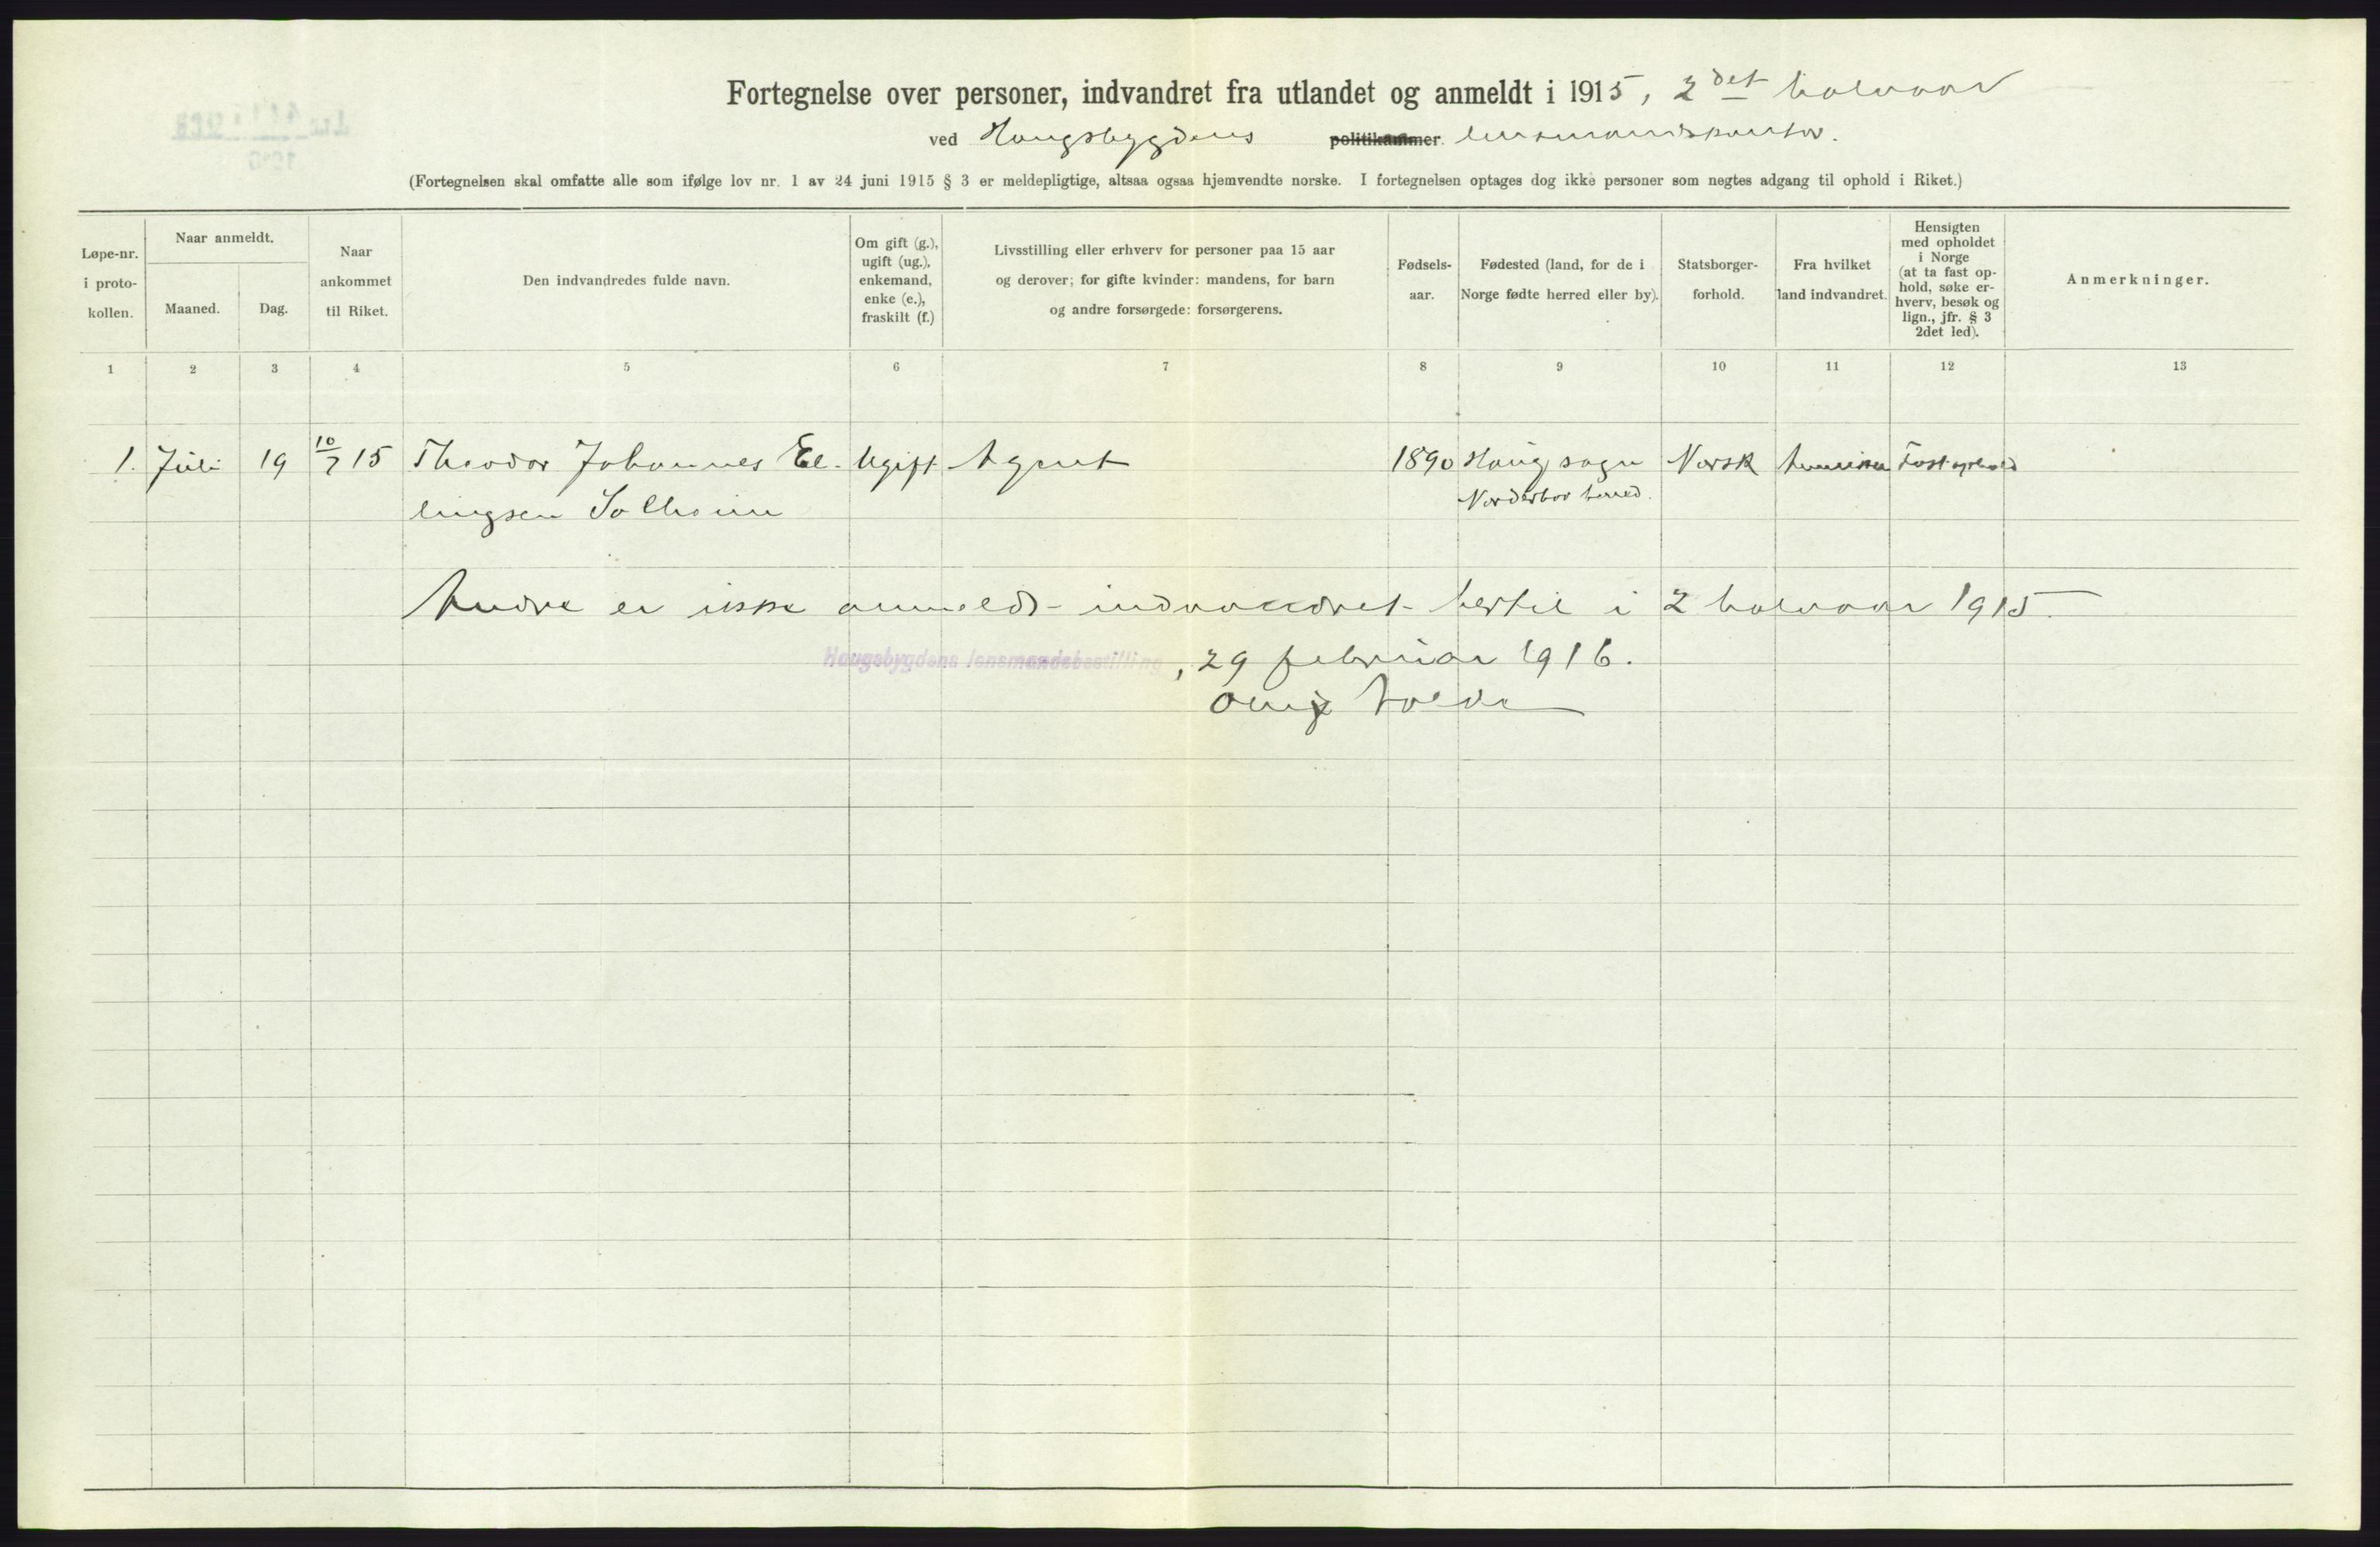 Fortegnelse over personer, indvandret fra utlandet og anmeldt i 1915, 2det halvaar
ved Haugsbygdens politikammer. lensmandskontor.
(Fortegnelsen skal omfatte alle som ifølge lov nr. 1 av 24 juni 1915 § 3 er meldepligtige, altsaa ogsaa hjemvendte norske. I fortegnelsen optages dog ikke personer som negtes adgang til ophold i Riket.)
Løpe-nr.
i proto-
kollen.
Naar anmeldt.
Maaned.
Dag.
Naar
ankommet
til Riket.
Den indvandredes fulde navn.
Om gift (g.),
ugift (ug.),
enkemand,
enke (e.),
fraskilt (f.)
Livsstilling eller erhverv for personer paa 15 aar
og derover; for gifte kvinder: mandens, for barn
og andre forsørgede: forsørgerens.
Fødsels-
aar.
Fødested (land, for de i
Norge fødte herred eller by).
Statsborger-
forhold.
Fra hvilket
land indvandret.
Hensigten
med opholdet
i Norge
(at ta fast op-
hold, søke er-
hverv, besøk og
lign., jfr. § 3
2det led).
Anmerkninger.
1 2 3 4 5 6 7 8 9 10 11 12 13
1. Juli 19 10/7 15 Theodor Johannes El- Ugift Agent 1890 Haug sogn Norsk Amerika Fast ophold
lingsen Solheim Norderhov herred.
Andre er ikke anmeldt indvandret hertil i 2 halvaar 1915.
Haugsbygdens lensmandsbestilling, 29 februar 1916.